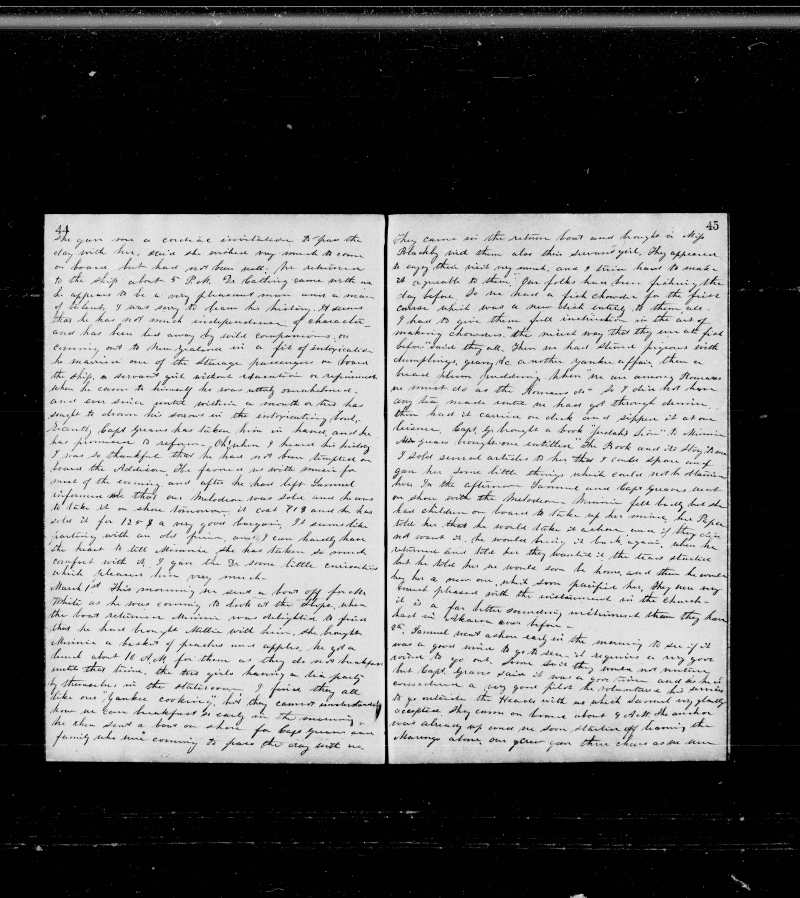 44
She gave me a cordial invitation to pass the
day with her, said she wished very much to come
on board but had not been well. We returned
to the ship about 5 P.M. Dr Catling came with us
he appears to be a very pleasant man and a man
of talent, I was sorry to learn his history. It seems
that he has not much independence of character
and has been led away by wild companions, on
coming out to New Zealand in a fit of intoxication
he married one of the steerage passengers on board
the ship, a servant girl without education or refinement
when he came to himself he was utterly overwhelmed
and ever since until within a month or two has
sought to drown his sorrows in the intoxicating bowl.
Recently Capt Greaves has taken him in hand and he
has promised to reform. Oh! when I heard his history
I was so thankful that he had not been tempted on
board the Addison. He favored us with music for
most of the evening and after he had left Samuel
informed me that our Melodeon was sold and he was
to take it on shore tomorrow, it cost 78 $ and he has
sold it for 120 $ a very good bargain. It seems like
parting with an old friend, and I can hardly have
the heart to tell Minnie she has taken so much
comfort with it, I gave the Dr some little curiosities
which pleased him very much.
March 1st This morning we sent a boat off for Mr
White as he was coming to look at the Slops, when
the boat returned Minnie was delighted to find
that he had brought Mettie with him, she brought
Minnie a basket of peaches and apples. We got a
lunch about 10 A.M. for them as they do not breakfast
until that time, the two girls having a tea party
by themselves in the stateroom. I find they all
like our "Yankee cooking," but they cannot understand
how we can breakfast so early in the morning.
We then sent a boat on shore for Capt Greaves and
family who were coming to pass the day with us
45
They came in the return boat and brought a Miss
Blackly with them also their servant girl. They appeared
to enjoy their visit very much, and I tried hard to make
it agreeable to them. Our folks had been fishing the
day before. So we had a fish chowder for the first
course which was a new dish entirely to them all.
I had to give them full instruction in the art of
making chowder. "The nicest way that they ever ate fish
before" said they all. Then we had stewed pigeons with
dumplings, gravy &c another Yankee affair, then a
bread plum pudding. When we are among Romans
we must do as the Romans do - so I did not have
any tea made until we had got through dinner
then had it carried on deck and sipped it at our
leisure. Capt G. brought a book "Judah's Lion" to Minnie
Mrs Greaves brought one entitled "The Book and its Story" to me
I sold several articles to her that I could spare and
gave her some little things which could not be obtained
here. In the afternoon Samuel and Capt Greaves went
on shore with the Melodeon. Minnie felt badly but she
had children on board to take up her mind, her Papa
told her that he would take it ashore and if they did
not want it, he would bring it back again, when he
returned and told her they wanted it the tears started
but he told her we would soon be home, and then he would
buy her a new one, which soon pacified her. They were very
much pleased with the instrument in the church
it is a far better sounding instrument than they have
had in Akaroa ever before.
2d. Samuel went ashore early in the morning to see if it
was a good wind to go to sea - it requires a very good
wind to go out. Some said they would not venture
but Capt. Greaves said it was a good time and as he is
considered a very good pilot he volunteered his services
to go outside the Heads with us which Samuel very gladly
accepted. They came on board about 9 A.M. the anchor
was already up and we soon started off leaving the
Marengo alone, our crew gave three cheers as we were